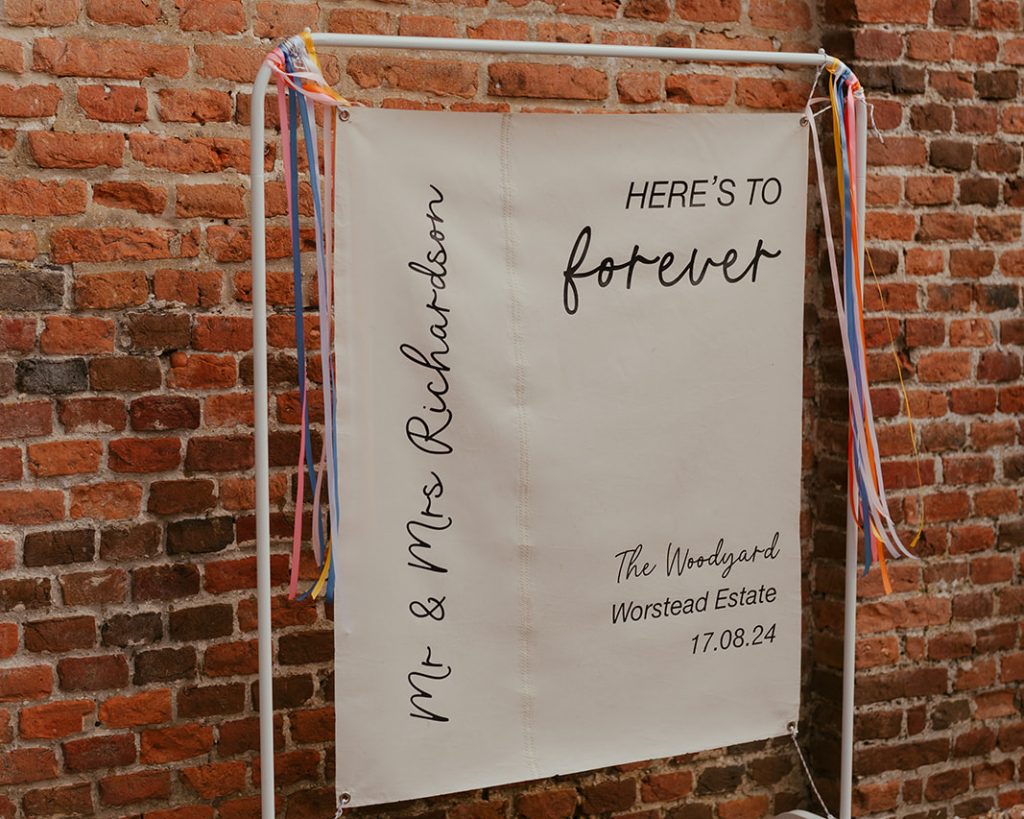 Mr & Mrs Richardson
HERE'S TO
forever
The Woodyard
Worstead Estate
17.08.24